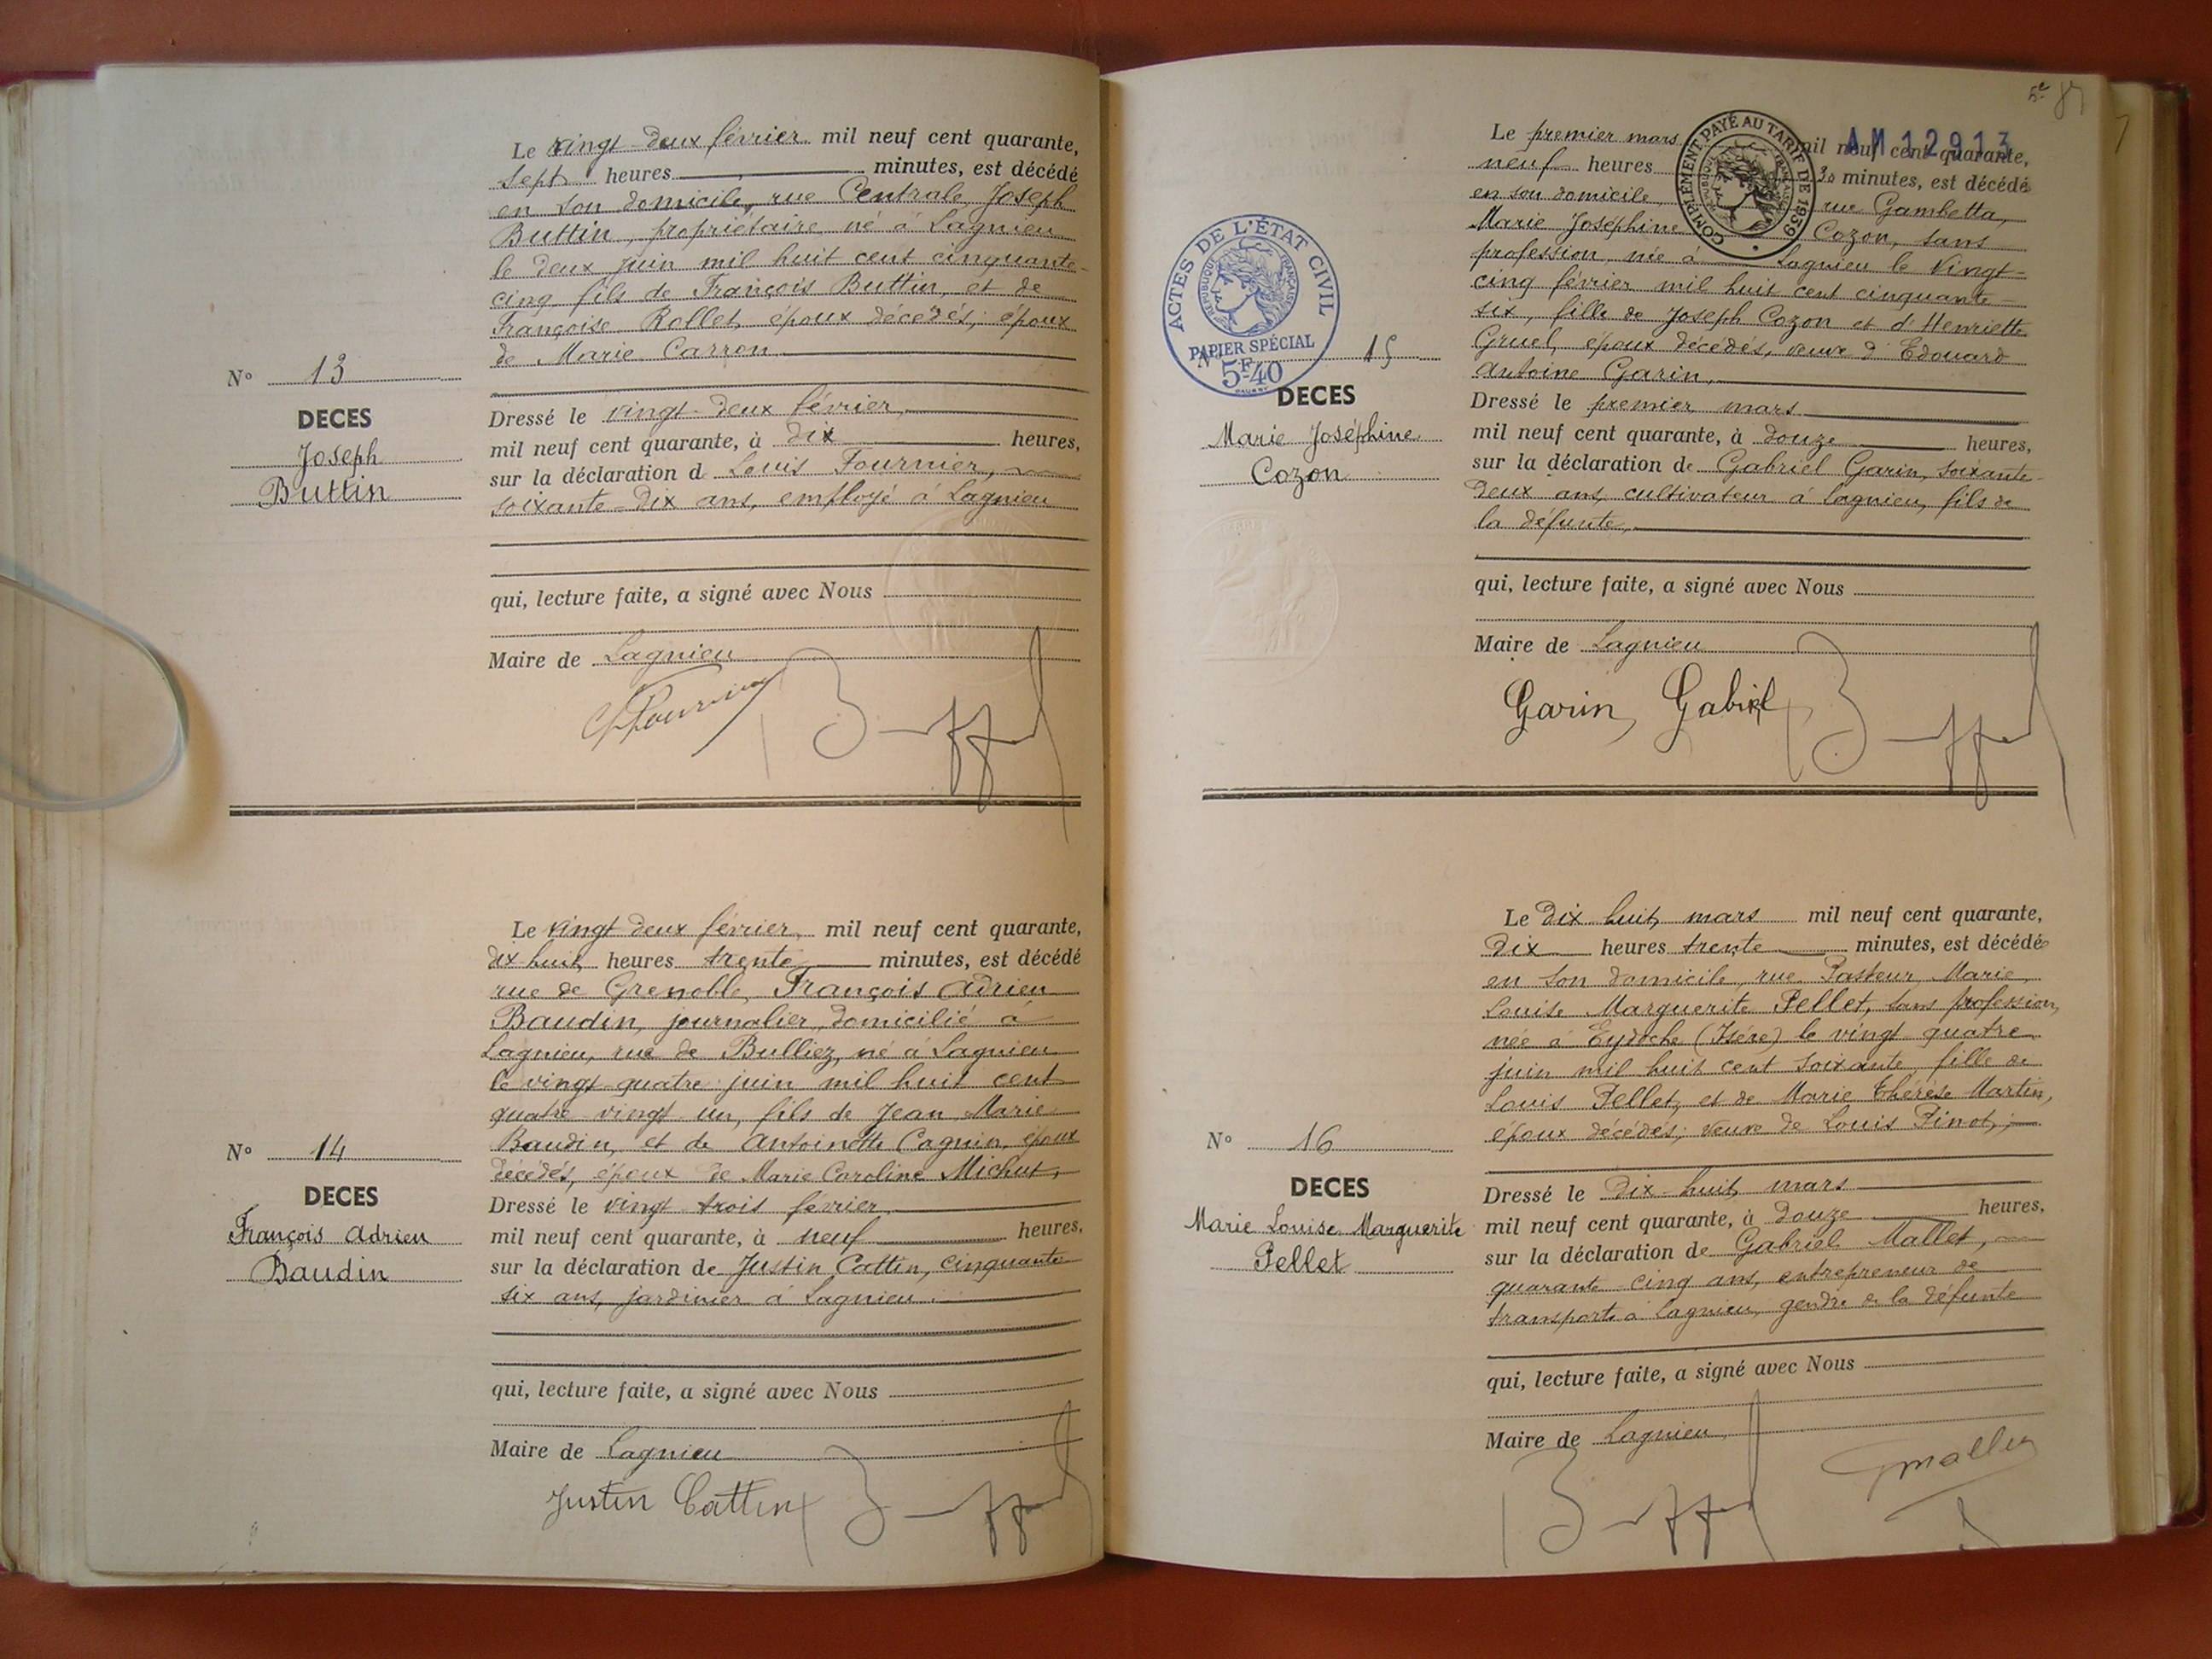 Le vingt-deux février mil neuf cent quarante,
sept heures minutes, est décédé
en son domicile, rue Centrale, Joseph
Buttin, propriétaire né à Lagnieu
le deux juin mil huit cent cinquante-
cinq fils de François Buttin, et de
Françoise Rollet, époux décédés; époux
de Marie Carron
N° 13
DECES
Joseph
Buttin
Dressé le vingt-deux février
mil neuf cent quarante, à dix heures,
sur la déclaration d Louis Fournier,
soixante-dix ans, employé à Lagnieu
qui, lecture faite, a signé avec Nous
Maire de Lagnieu
Le vingt deux février mil neuf cent quarante,
dix-huit heures trente minutes, est décédé
rue de Grenoble, François Adrien
Baudin, journalier, domicilié à
Lagnieu, rue de Bulliez, né à Lagnieu
le vingt-quatre juin mil huit cent
quatre-vingt un, fils de Jean Marie
Baudin, et de Antoinette Cagnin, époux
décédés, époux de Marie Caroline Michut,
N° 14
DECES
François Adrien
Baudin
Dressé le vingt-trois février
mil neuf cent quarante, à neuf heures,
sur la déclaration de Justin Cattin, cinquante
six ans, jardinier à Lagnieu
qui, lecture faite, a signé avec Nous
Maire de Lagnieu
Justin Cattin
5e
AM 12913
COMPLÉMENT PAYÉ AU TARIF DE 1939
Le premier mars mil neuf cent quarante,
neuf heures 30 minutes, est décédé
en son domicile, rue Gambetta,
Marie Joséphine Cozon, sans
profession, née à Lagnieu le vingt-
cinq février mil huit cent cinquante-
six, fille de Joseph Cozon et d'Henriette
Gruel, époux décédés, veuve d'Edouard
Antoine Garin,
ACTES DE L'ÉTAT CIVIL
RÉPUBLIQUE FRANÇAISE
PAPIER SPÉCIAL
5F40
N° 15
DECES
Marie Joséphine
Cozon
Dressé le premier mars
mil neuf cent quarante, à douze heures,
sur la déclaration de Gabriel Garin, soixante-
deux ans, cultivateur à Lagnieu, fils de
la défunte,
qui, lecture faite, a signé avec Nous
Maire de Lagnieu
Garin Gabriel
Le Dix huit mars mil neuf cent quarante,
dix heures trente minutes, est décédée
en son domicile, rue Pasteur, Marie
Louise Marguerite Pellet, sans profession,
née à Eydoche (Isère) le vingt quatre
juin mil huit cent soixante, fille de
Louis Pellet, et de Marie Thérèse Martin,
époux décédés; veuve de Louis Pinot,
N° 16
DECES
Marie Louise Marguerite
Pellet
Dressé le Dix-huit mars
mil neuf cent quarante, à douze heures,
sur la déclaration de Gabriel Mallet,
quarante cinq ans, entrepreneur de
transports à Lagnieu, gendre de la défunte
qui, lecture faite, a signé avec Nous
Maire de Lagnieu
GMallet